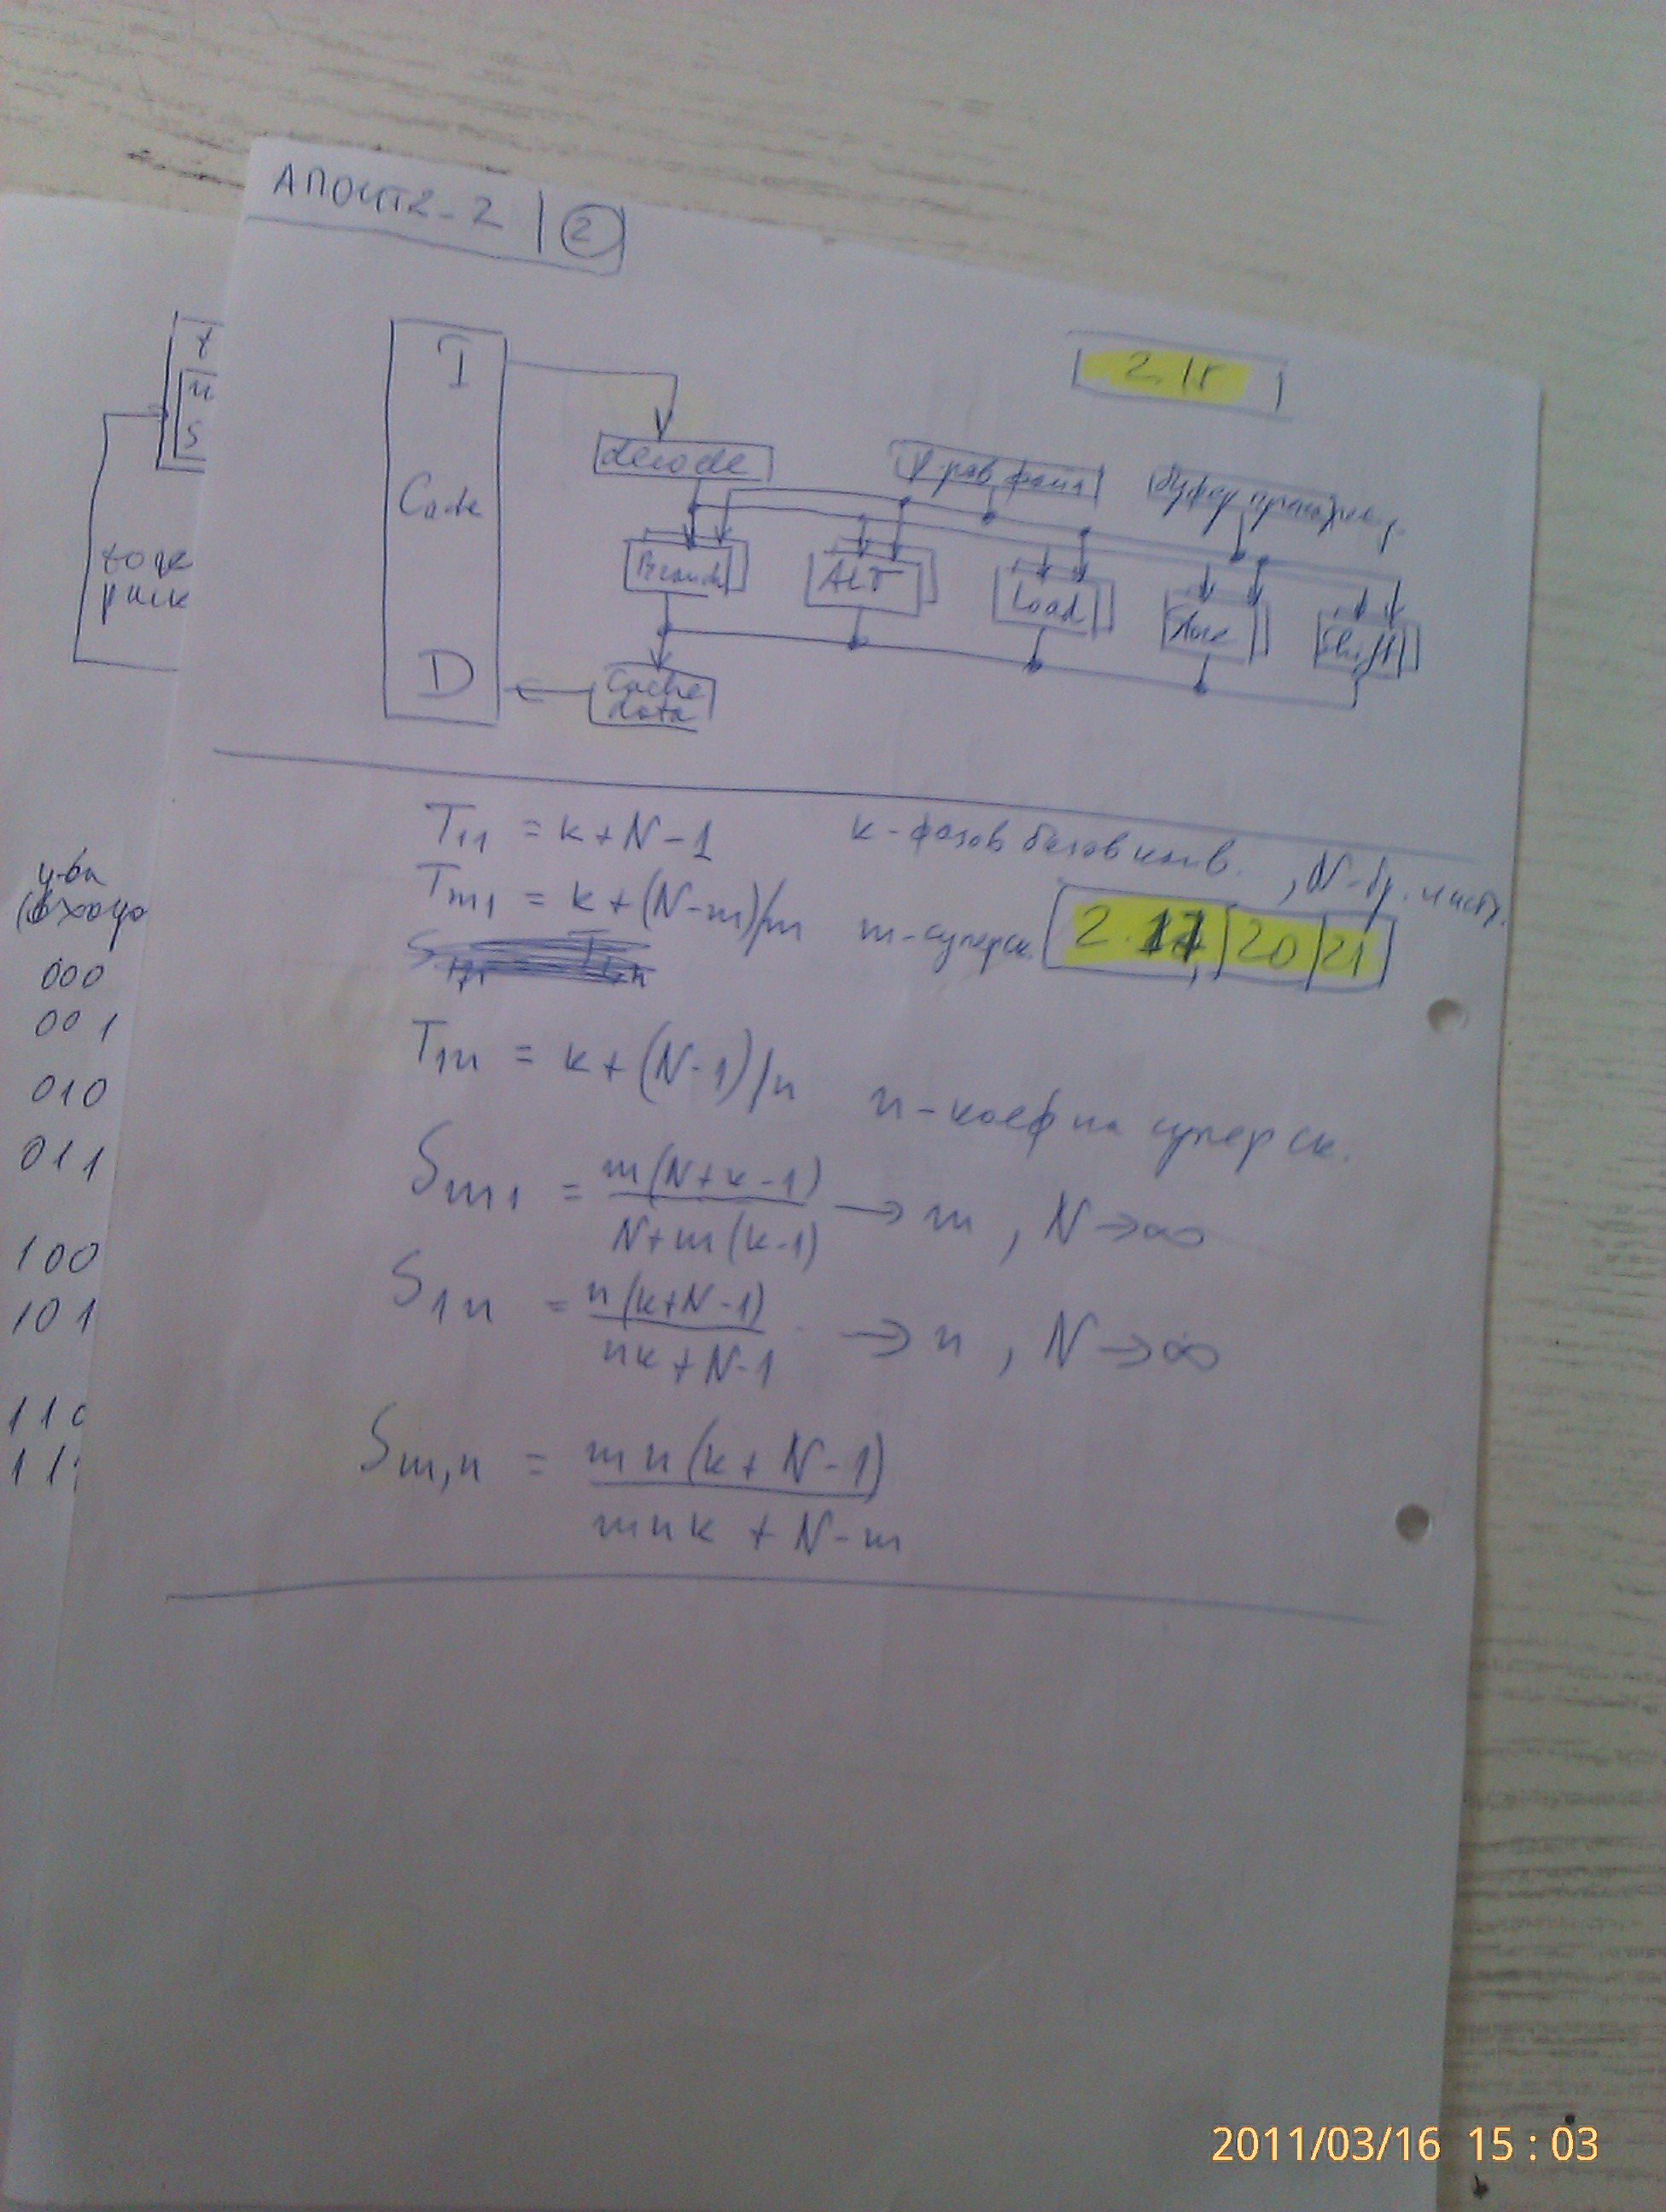 АПОИТ2-2 | 2
2.15
I
Cache
D
decode
Branch
ALU
Load
Store
Shift
Cache
data
T11 = k+N-1
k-фазов базов конв. , N-бр. инстр.
Tm1 = k+(N-m)/m
m-суперск.
2.17, 20 21
T1n = k+(N-1)/n
n-коеф на суперск.
Sm1 = m(N+k-1) / N+m(k-1) → m , N→∞
S1n = n(k+N-1) / nk+N-1 → n , N→∞
Sm,n = mn(k+N-1) / mnk+N-m
t
n
S
000
001
010
011
100
101
110
2011/03/16 15:03